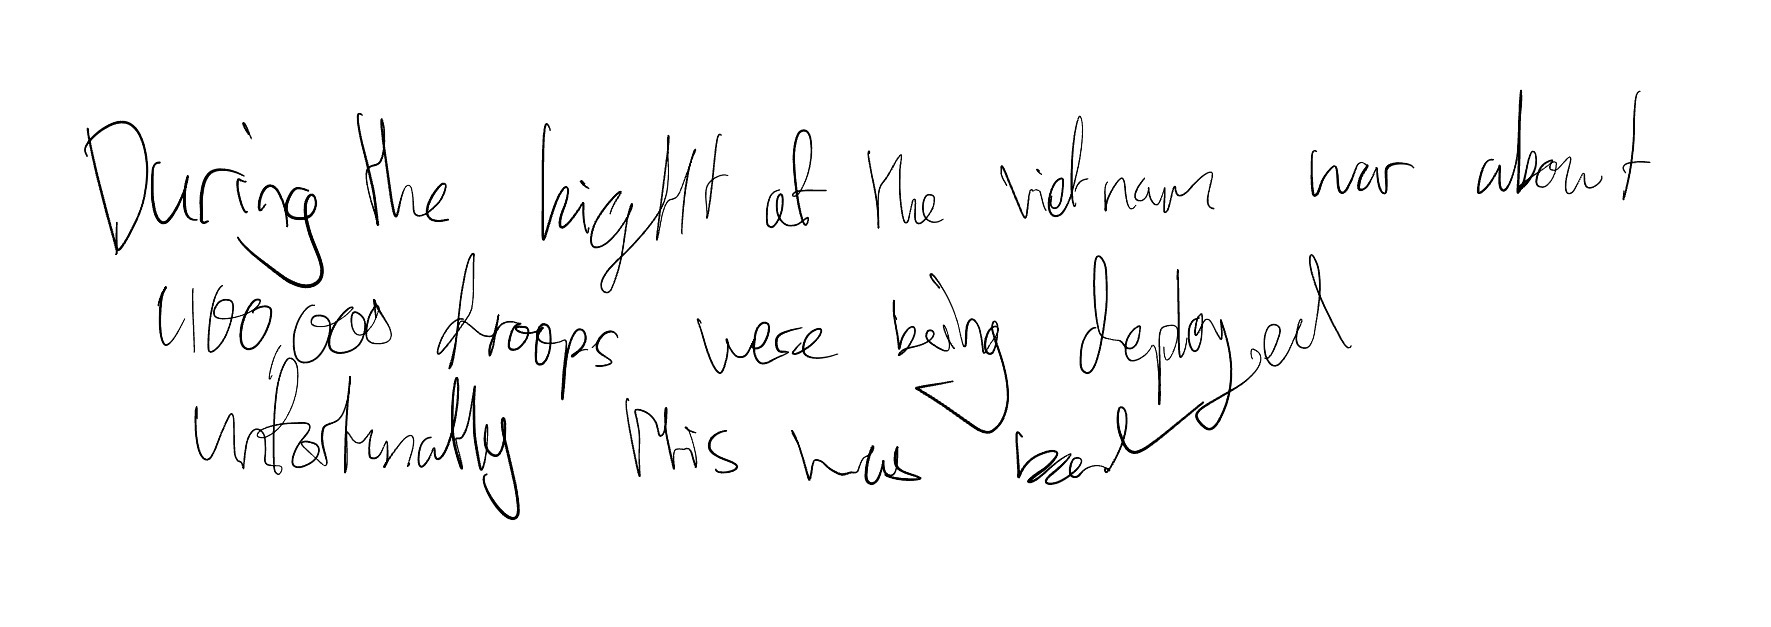 During the hight of the vietnam war about
400,000 troops were being deployed
unfortunatly this was bad